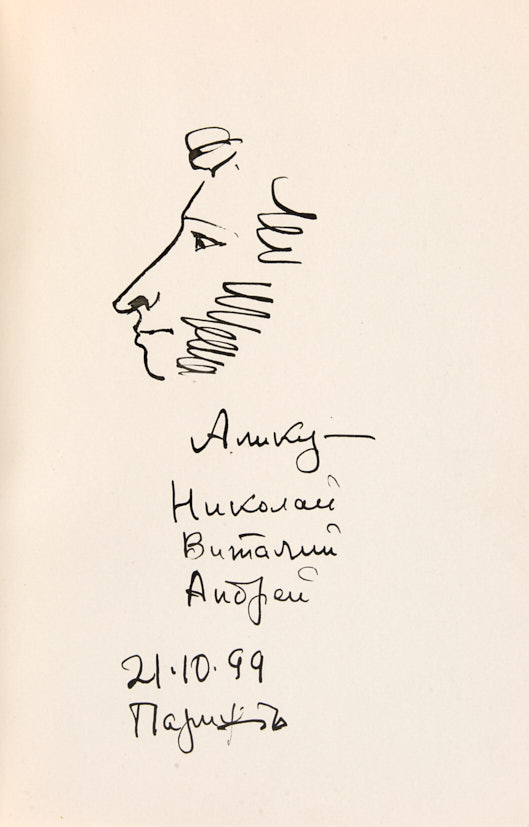 Алику —
Николай
Виталий
Андрей
21.10.99
Парижъ